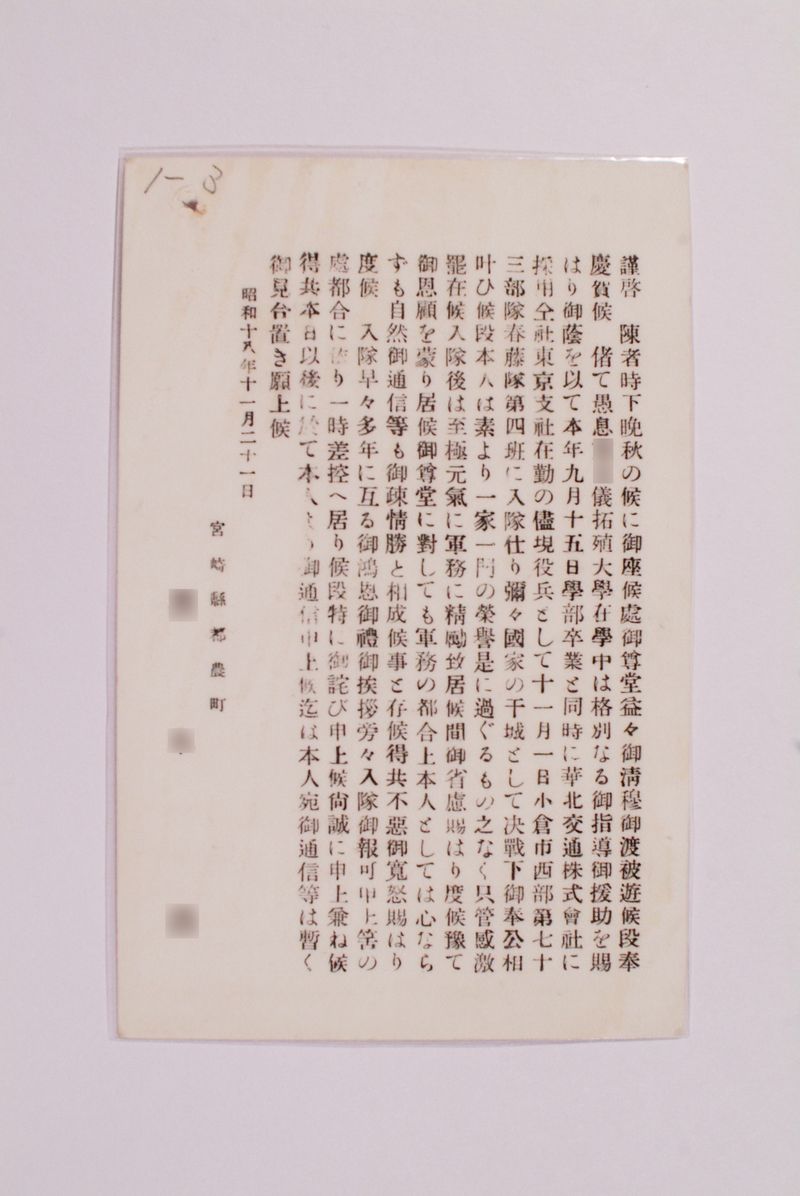 1-3
謹啓　陳者時下晩秋の候に御座候處御尊堂益々御清穆御渡被遊候段奉
慶賀候　偖て愚息　儀拓殖大學在學中は格別なる御指導御援助を賜
はり御蔭を以て本年九月十五日學部卒業と同時に華北交通株式會社に
採用仝社東京支社在勤の儘現役兵として十一月一日小倉市西部第七十
三部隊春藤隊第四班に入隊仕り彌々國家の干城として決戰下御奉公相
叶ひ候段本人は素より一家一門の榮譽是に過ぐるもの之なく只管感激
罷在候入隊後は至極元氣に軍務に精勵致居候間御省慮賜はり度候豫て
御恩顧を蒙り居候御尊堂に對しても軍務の都合上本人としては心なら
ずも自然御通信等も御疎情勝と相成候事と存候得共不惡御寬恕賜はり
度候　入隊早々多年に亙る御鴻恩御禮御挨拶旁々入隊御報可申上筈の
處都合に　り一時差控へ居り候段特に御詫び申上候尙誠に申上兼ね候
得共本日以後に　て本人　り御通信申上候迄は本人宛御通信等は暫く
御見合置き願上候
昭和十八年十一月二十一日
宮崎縣都農町